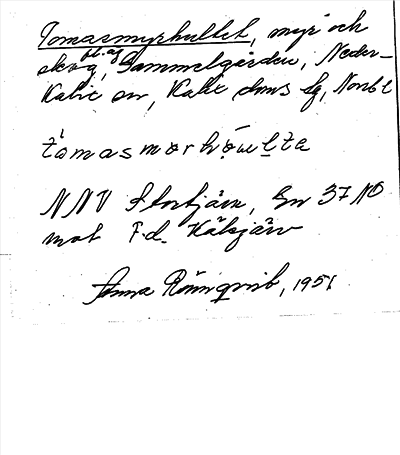 Tomasmyrhullet, myr och
fl. äg.
skog, Gammelgården, Neder-
Kalix sn, Kalix dms tg, Nonbl
tomasmorhowlta
NNV Stortjärn, Gv 37 NO
mot F.d. Kälsjärv
Anna Rönnqvist, 1951